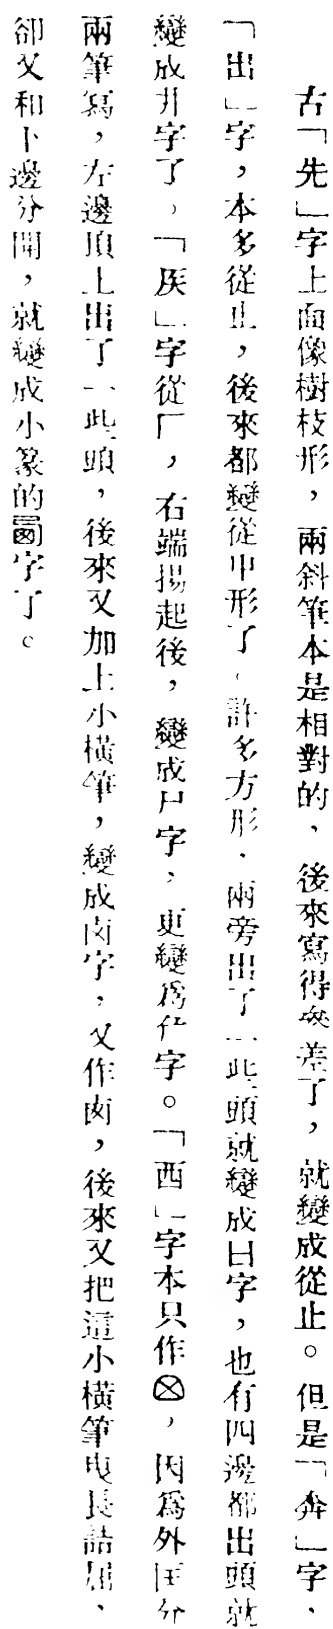 古「先」字上面像樹枝形，兩斜筆本是相對的，後來寫得參差了，就變成從止。但是「奔」字、
「出」字，本多從止，後來都變從屮形了，許多方形，兩旁出了一些頭就變成廿字，也有四邊都出頭就
變成井字了，「疾」字從厂，右端揚起後，變成尸字，更變爲字。「西」字本只作，因爲外匡分
兩筆寫，左邊頂上出了一些頭，後來又加上小橫筆，變成字，又作，後來又把這小橫筆曳長詰屈，
卻又和卜邊分開，就變成小篆的字了。